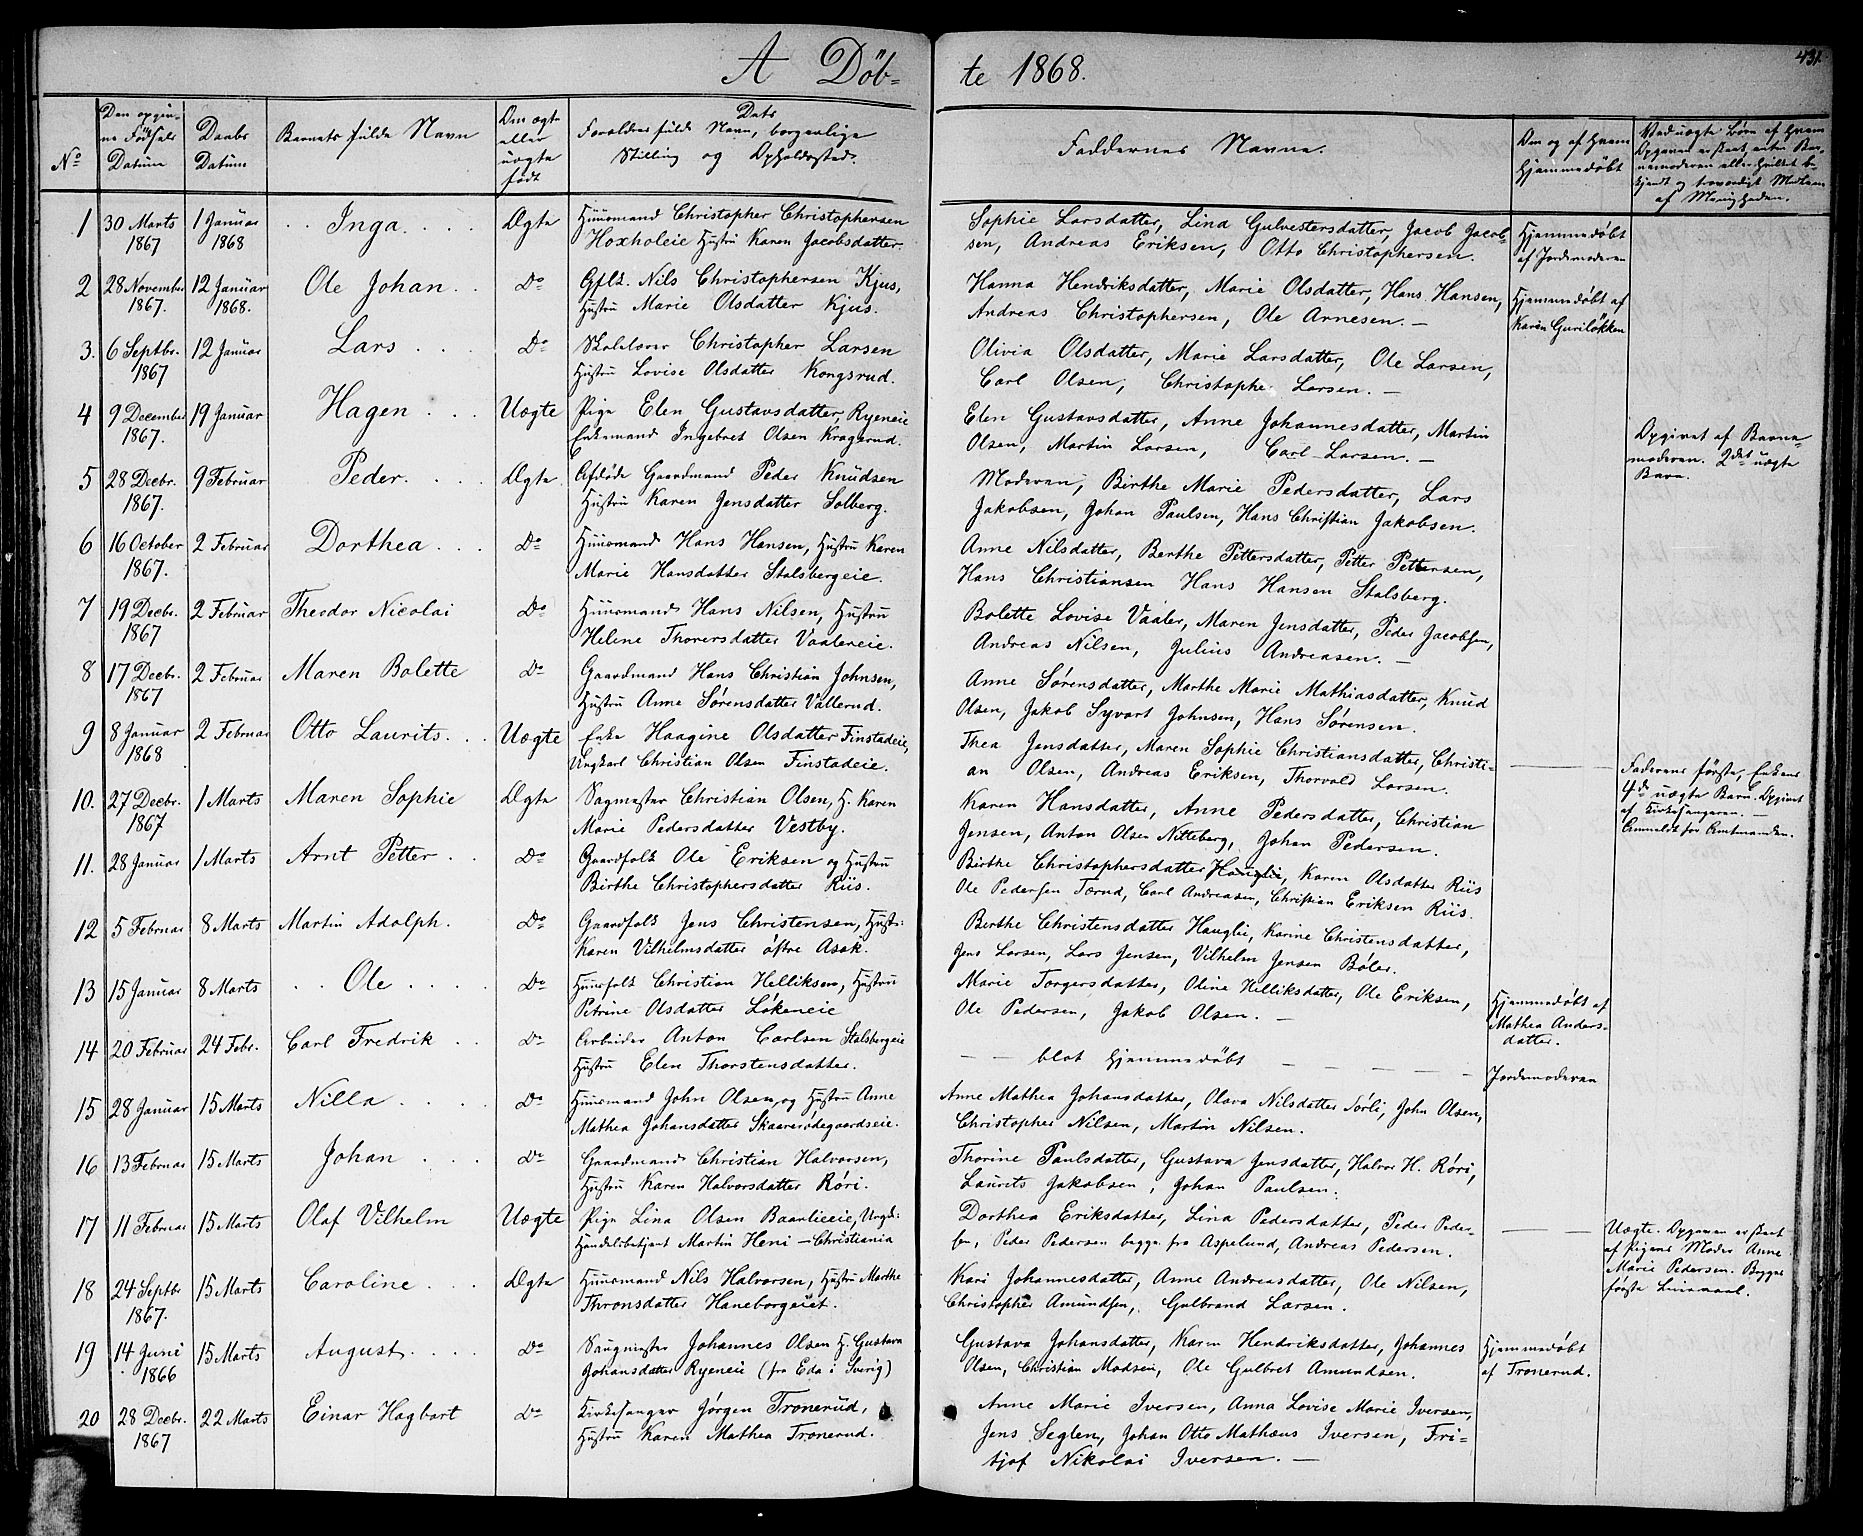 A Döb- te 1868.
431.
No
Den opgiv-
ne Födsels
Datum
Daabs
Datum
Barnets fulde Navn
Om ægte
eller
uægte
födt
Dets
Forældres fulde Navn, borgerlige
Stilling og Opholdssted.
Faddernes Navne.
Om og af Hvem
Hjemmedöbt
Ved uægte Börn af Hvem
Opgaven er skeet, enten Bar-
nemoderen eller hvilket be-
kjendt og troværdigt Medlem
af Menigheden.
1 30 Marts 1 Januar Inga Ægte Huusmand Christopher Christophersen Sophie Larsdatter, Lina Gulvestersdatter, Jacob Jacob- Hjemmedöbt
1867 1868 Hoxholeie Hustru Karen Jacobsdatter. sen, Andreas Eriksen, Otto Christophersen. af Jordemoderen
2 28 November 12 Januar Ole Johan Do Gflk. Nils Christophersen Kjus, Hanna Hendriksdatter, Marie Olsdatter, Hans Hansen, Hjemmedöbt af
1867. 1868. Hustru Marie Olsdatter Kjus. Andreas Christophersen, Ole Arnesen. — Karen Guriløkken
3. 6 Septbr. 12 Januar Lars Do Skolelærer Christopher Larsen Olivia Olsdatter, Marie Larsdatter, Ole Larsen,
1867 Hustru Lovise Olsdatter Kongsrud. Carl Olsen, Christopher Larsen. —
4 9 December 19 Januar Hagen Uægte Pige Elen Gustavsdatter Ryeneie Elen Gustavsdatter, Anne Johannesdatter, Martin Opgivet af Barne-
1867. Enkemand Ingebret Olsen Kragsrud. Olsen, Martin Larsen, Carl Larsen. — moderen. 2det uægte
Barn.
5 28 Decbr. 9 Februar Peder Ægte Afdöde Gaardmand Peder Knudsen Moderen, Birthe Marie Pedersdatter, Lars
1867. Hustru Karen Jensdatter Solberg. Jakobsen, Johan Paulsen, Hans Christian Jakobsen.
6 16 October 2 Februar Dorthea Do Huusmand Hans Hansen, Hustru Karen Anne Nilsdatter, Berthe Pettersdatter, Petter Pettersen,
1867. Marie Hansdatter Stalsbergeie. Hans Christiansen Hans Hansen Stalsberg.
7 19 Decbr. 2 Februar Theodor Nicolai Do Huusmand Hans Nilsen, Hustru Bolette Lovise Vaaler, Maren Jensdatter, Peder Jacobsen,
1867 Helene Thorersdatter Vaalereie. Andreas Nilsen, Julius Andreasen. —
8 17 Decbr. 2 Februar Maren Bolette Do Gaardmand Hans Christian Johnsen, Anne Sørensdatter, Marthe Marie Mathiasdatter, Knud
1867 Hustru Anne Sørensdatter Vallerud. Olsen, Jakob Syvart Johnsen, Hans Sørensen.
9 8 Januar 2 Februar Otto Laurits Uægte Enke Haagine Olsdatter Finstadeie, Thea Jensdatter, Maren Sophie Christiansdatter, Christi- Faderens første, Enkens
1868 Ungkarl Christian Olsen Finstadeie. an Olsen, Andreas Eriksen, Thorvald Larsen. 4de uægte Barn. Opgivet
af Kirkesangeren. —
Anmeldt for Amtmanden.
10. 27 Decbr. 1 Marts Maren Sophie Ægte Sagmester Christian Olsen, H. Karen Karen Hansdatter, Anne Pedersdatter, Christian
1867 Marie Pedersdatter Vestby. Jensen, Anton Olsen Nitteberg, Johan Pedersen.
11. 28 Januar 1 Marts Arnt Petter Do Gaardfolk Ole Eriksen og Hustru Birthe Christophersdatter Hauglie, Karen Olsdatter Riis
Birthe Christophersdatter Riis. Ole Pedersen Torud, Carl Andreasen, Christian Eriksen Riis.
12 5 Februar 8 Marts Martin Adolph. Do Gaardfolk Jens Christensen, Hustr: Berthe Christensdatter Hauglie, Karine Christensdatter,
Karen Vilhelmsdatter østre Asak. Jens Larsen, Lars Jensen, Vilhelm Jensen Böler.
13 15 Januar 8 Marts Ole Do Huusfolk Christian Helliksen, Hustru Marie Torgersdatter, Oline Helliksdatter, Ole Eriksen, Hjemmedöbt af
Petrine Olsdatter Løkeneie Ole Pedersen, Jakob Olsen. — Mathea Anders-
datter.
14 20 Februar 24 Febr. Carl Fredrik Do Arbeider Anton Carlsen Stalsbergeie — — blot hjemmedöbt — — — — — Jordemoderen
Hustru Elen Thorstensdatter.
15 28 Januar 15 Marts Nilla Do Huusmand John Olsen, og Hustru Anne Anne Mathea Johansdatter, Olava Nilsdatter Sörli, John Olsen,
Mathea Johansdatter Skaarerødegaardseie. Christopher Nilsen, Martin Nilsen.
16 13 Februar 15 Marts Johan Do Gaardmand Christian Halvorsen, Thorine Paulsdatter, Gustava Jensdatter, Halvor H. Röri,
Hustru Karen Halvorsdatter Röri. Laurits Jakobsen, Johan Paulsen.
17 11 Februar 15 Marts Olaf Vilhelm Uægte Pige Lina Olsen Baarlieeie, Ungk: Dorthea Eriksdatter, Lina Pedersdatter, Peder Peder- — — Uægte. Opgaven er skeet
Handelsbetjent Martin Heni — Christiania sen, Peder Pedersen begge fra Aspelund, Andreas Pedersen. af Pigens Moder Anne
Marie Pedersen. Begges
første Leiermaal.
18 24 Septbr 15 Marts Caroline Ægte Huusmand Nils Halvorsen, Hustru Marthe Kari Johannesdatter, Anne Andreasdatter, Ole Nilsen,
1867. Thronsdatter Haneborgeiet. Christopher Amundsen, Gulbrand Larsen.
19 14 Juni 15 Marts August Do Saugmester Johannes Olsen H. Gustava Gustava Johansdatter, Karen Hendriksdatter, Johannes Hjemmedöbt
1866 Johansdatter Ryeneie (fra Eda i Sverig) Olsen, Christian Madsen, Ole Gulbret Amundsen. af Tronerud.
20 28 Decbr. 22 Marts Einar Hagbart Do Kirkesanger Jørgen Tronerud, Anne Marie Iversen, Anna Lovise Marie Iversen,
1867 Hustru Karen Mathea Tronerud. Jens Seglen, Johan Otto Mathæus Iversen, Fri-
tjof Nikolai Iversen. —